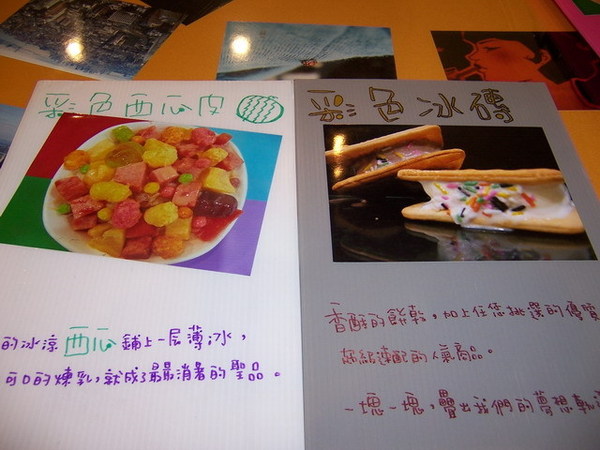 彩色西瓜皮
的冰涼西瓜鋪上一层薄冰，
可口的煉乳，就成了最消暑的聖品。
彩色冰磚
香酥的餅乾，加上任您挑選的優質
超級速配的人氣商品。
一塊一塊，疊出我們的夢想